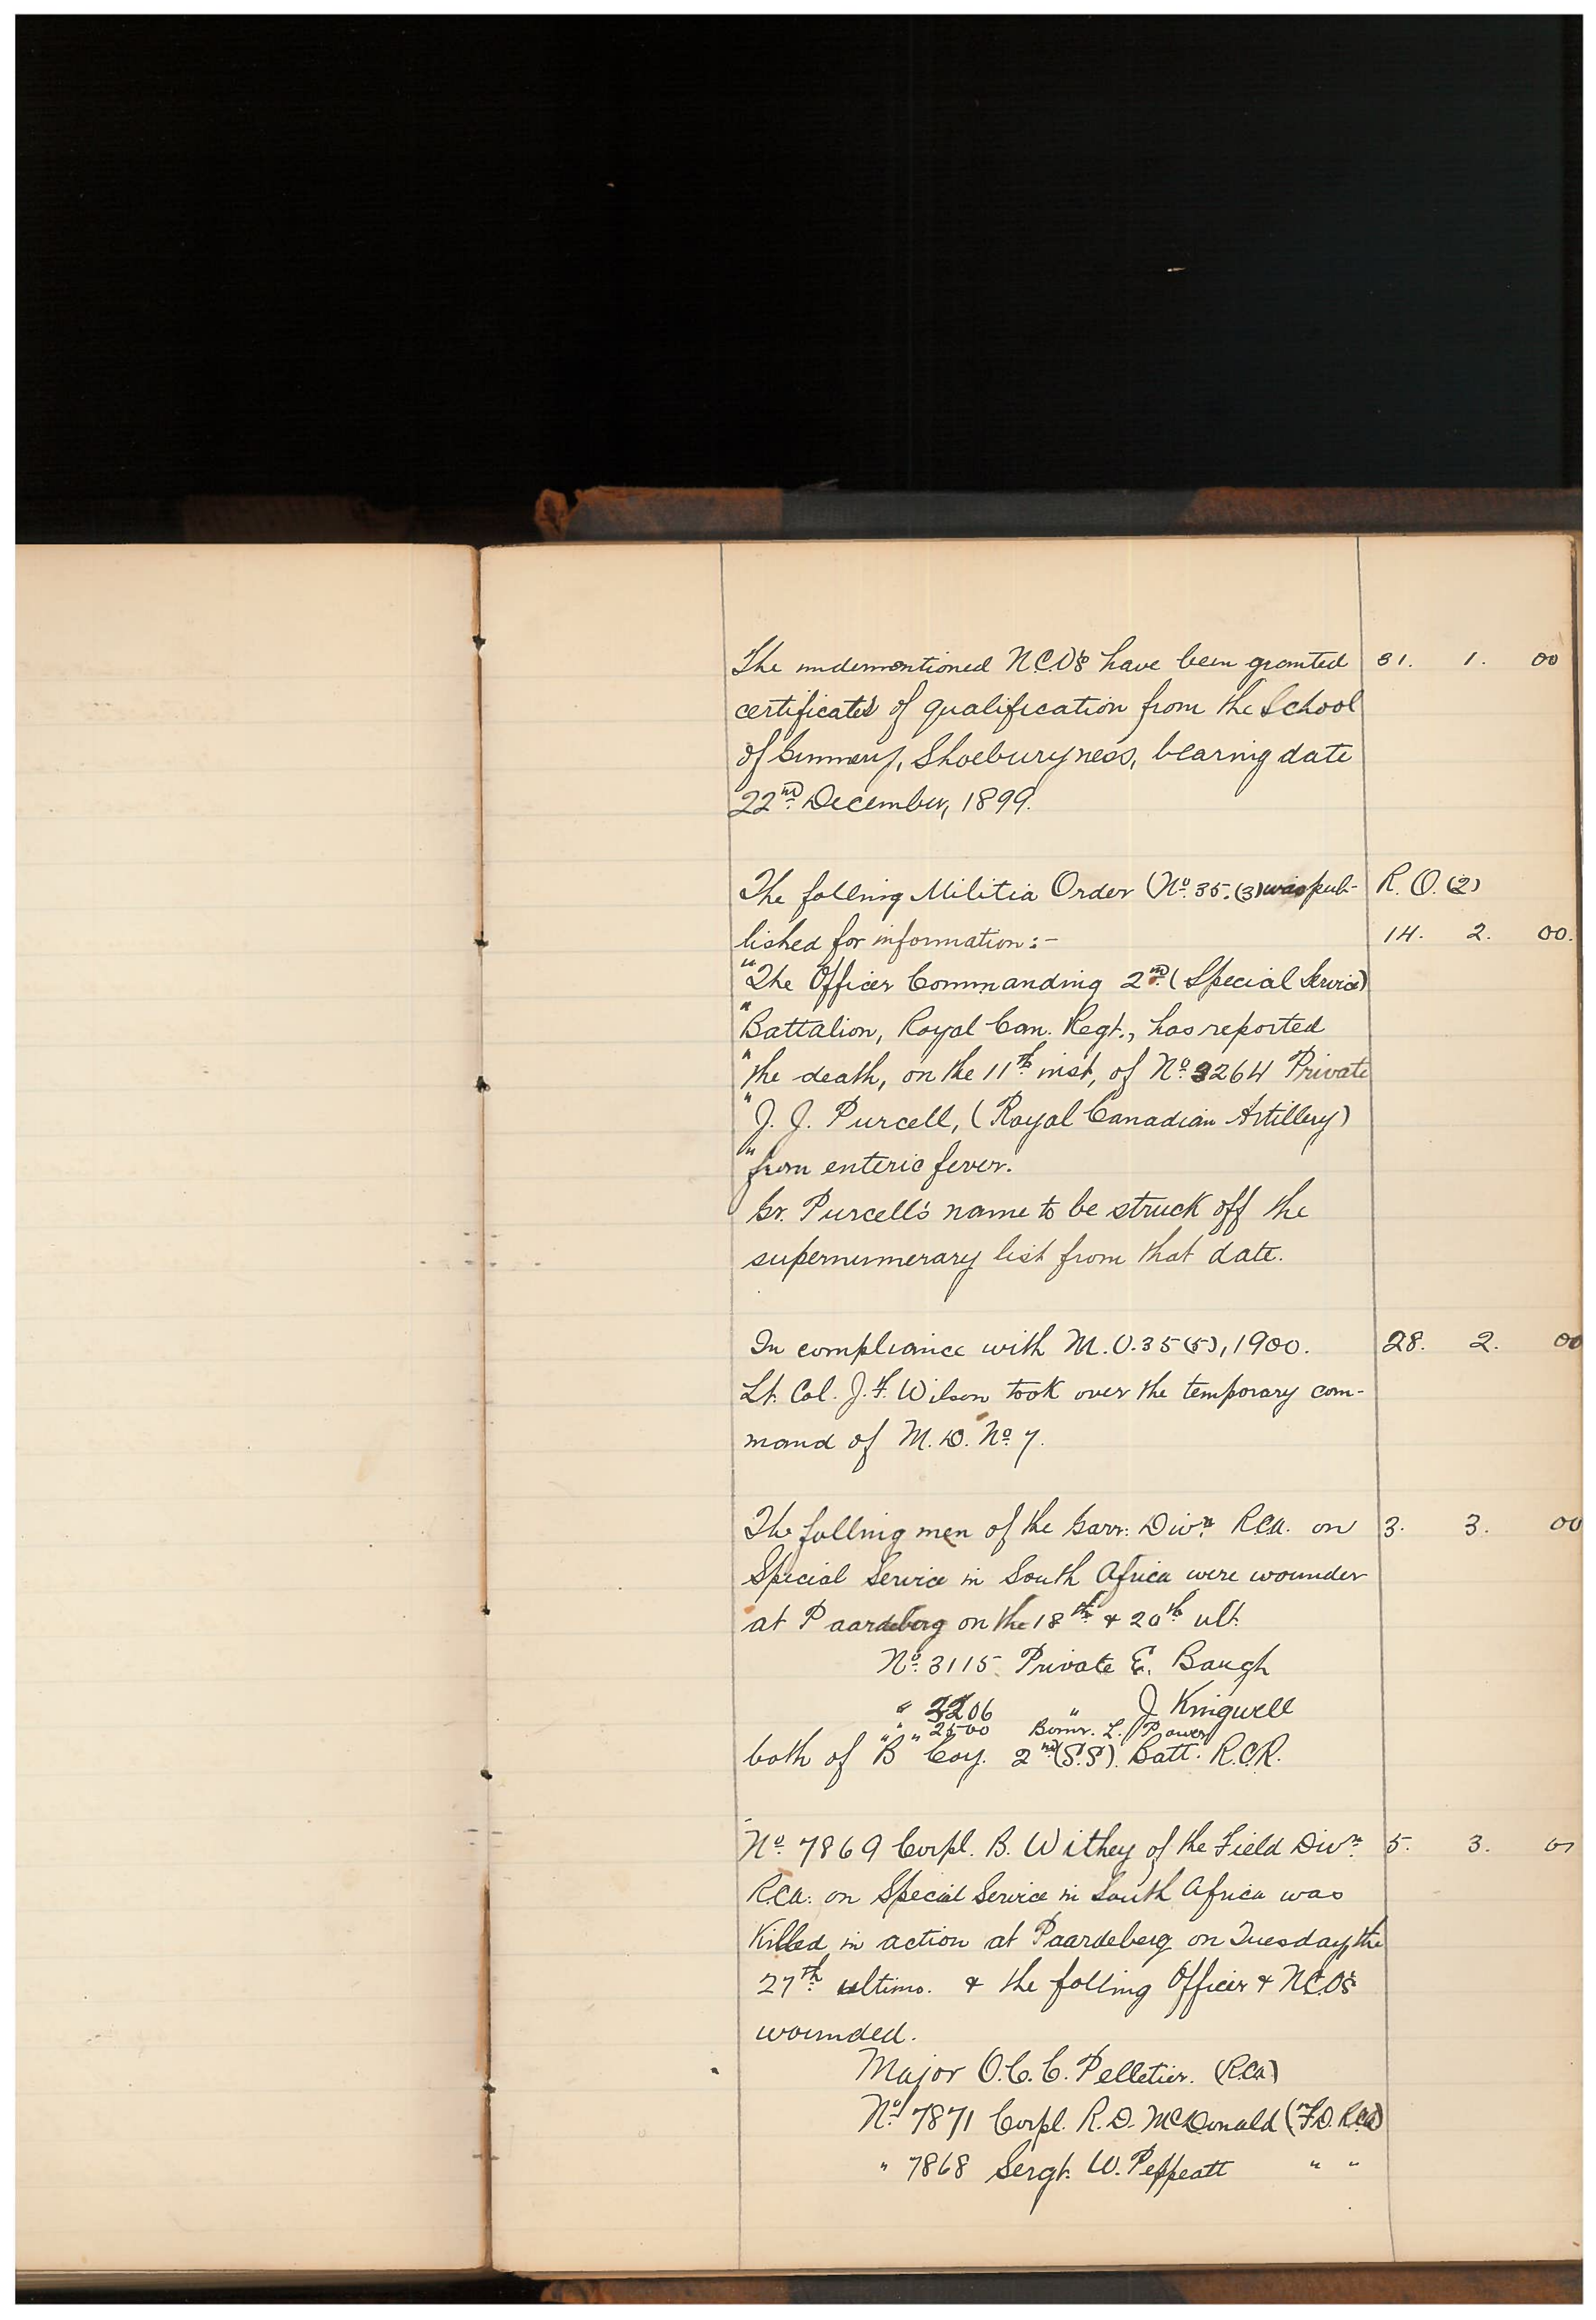 The undermentioned N.C.O's have been granted 31. 1. 00
certificates of qualification from the School
of Gunnery, Shoeburyness, bearing date
22nd December, 1899.
The follning Militia Order (No. 35. (3) was pub- R. O. (2)
lished for information :- 14. 2. 00.
"The Officer Commanding 2nd (Special Service)
"Battalion, Royal Can. Regt., has reported
"the death, on the 11th inst, of No. 3264 Private
"J. J. Purcell, (Royal Canadian Artillery)
"from enteric fever.
Gr. Purcell's name to be struck off the
supernumerary list from that date.
In compliance with M.O. 35 (5), 1900. 28. 2. 00
Lt. Col. J. F. Wilson took over the temporary com-
mand of M. D. No. 7.
The follning men of the Garr: Divn. RCA. on 3. 3. 00
Special Service in South Africa were wounder
at Paardeberg on the 18th & 20th ult.
No. 3115 Private E. Baugh
" 3206 " J. Kingwell
" 2500 Bomr. L. Power
both of "B" Coy. 2nd (S.S). Batt. R.C.R.
No. 7869 Corpl. B. Withey of the Field Divn. 5. 3. 00
RCA: on Special Service in South Africa was
Killed in action at Paardeberg on Tuesday the
27th ultimo. & the follning Officer & NCO's
wounded.
Major O. C. C. Pelletier. (RCA)
No. 7871 Corpl. R. D. McDonald (F.D. RCA)
" 7868 Sergt. W. Peppeatt " "